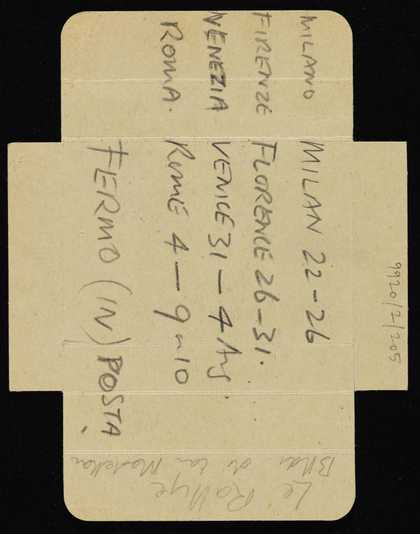 MILANO MILAN 22-26
FIRENZE FLORENCE 26-31.
VENEZIA VENICE 31 - 4 Aug.
ROMA. ROME 4 - 9 or 10
FERMO (IN) POSTA
9920/2/205
Le Rallye
Blvd. de la Madeleine